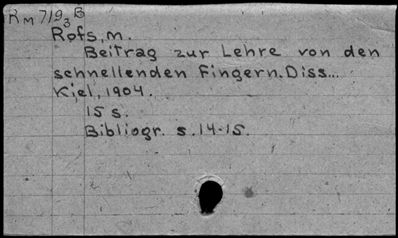 RM 719 B
3
Rofs, M.
Beitrag zur Lehre von den
schnellenden Fingern. Diss...
Kiel, 1904.
15 s.
Bibliogr. s. 14-15.